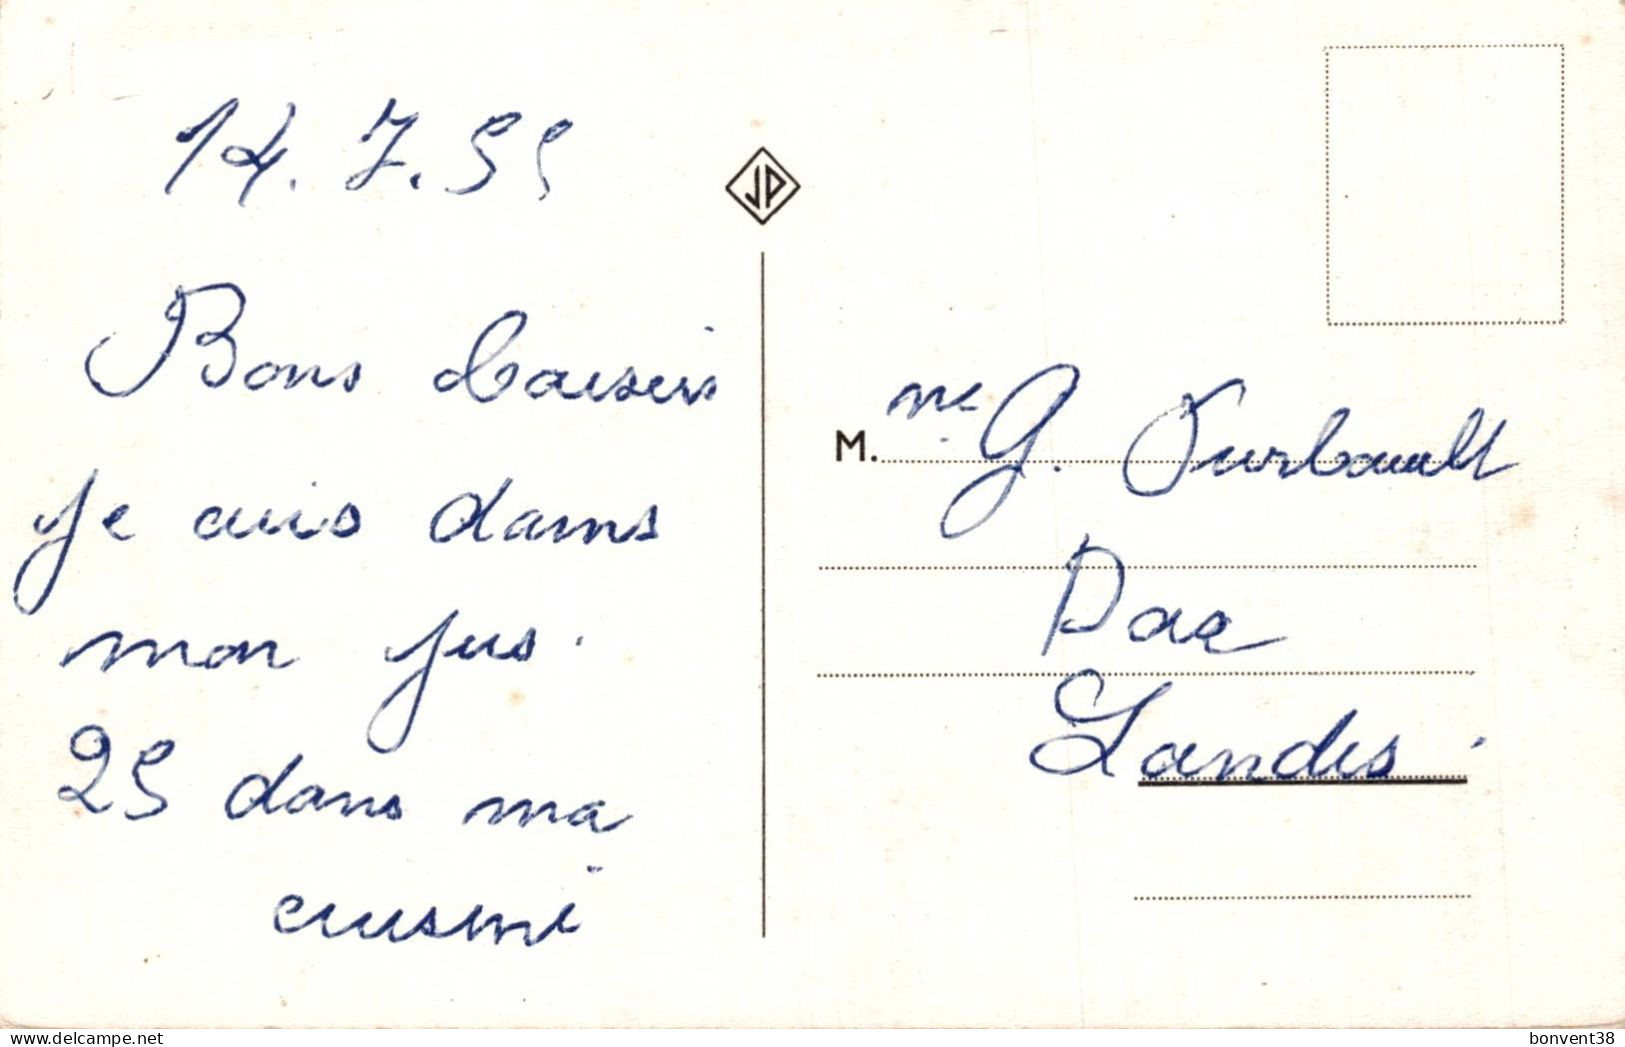 14.7.55
Bons baisers
je cuis dans
mon jus.
25 dans ma
cuisine
JP
M.me G. Durbault
Dax
Landes.
bonvent38